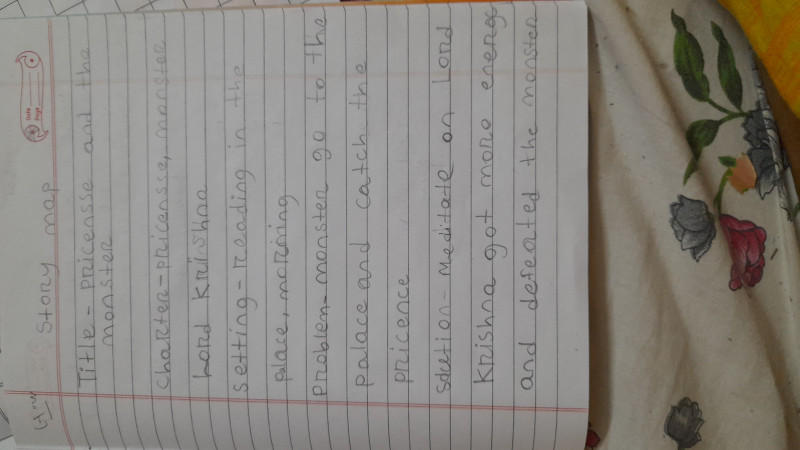 Story map
Date
Page
Title - pricensse and the
monster
charter - pricensse, monster
Lord Krishna
setting - reading in the
place, morning
problem - monster go to the
palace and catch the
pricence
soletion - Meditate on Lord
Krishna got more energe
and defeated the monster